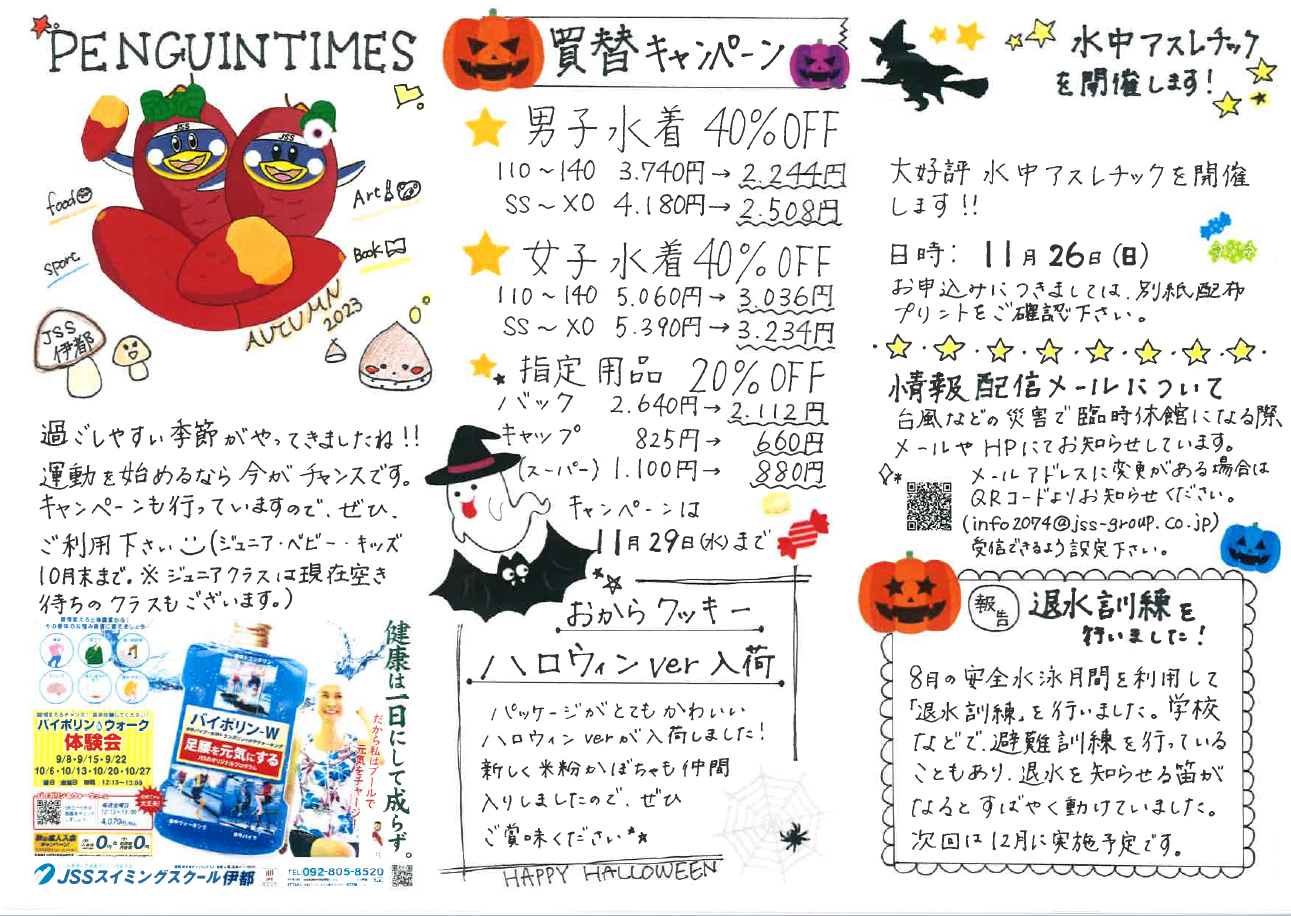 PENGUINTIMES
JSS
JSS
food
Art
sport
Book
AUTUMN
2023
JSS
伊都
過ごしやすい季節がやってきましたね!!
運動を始めるなら今がチャンスです。
キャンペーンも行っていますので、ぜひ、
ご利用下さい(ジュニア・ベビー・キッズ
10月末まで。※ジュニアクラスは現在空き
待ちのクラスもございます。)
健康は一日にして成らず。
だから私はプールで
元気をチャージ!
バイポリン-W
足腰を元気にする
バイポリン&ウォーク
体験会
9/8・9/15・9/22
10/6・10/13・10/20・10/27
12:15～13:00
4,070円
0円
0円
JSSスイミングスクール伊都
TEL 092-805-8520
買替キャンペーン
男子水着 40%OFF
110～140 3.740円→2.244円
SS～XO 4.180円→2.508円
女子水着 40%OFF
110～140 5.060円→3.036円
SS～XO 5.390円→3.234円
指定用品 20%OFF
バック 2.640円→2.112円
キャップ 825円→660円
(スーパー) 1.100円→880円
キャンペーンは
11月29日(水)まで
おからクッキー
ハロウィンver入荷
パッケージがとてもかわいい
ハロウィンverが入荷しました!
新しく米粉かぼちゃも仲間
入りしましたので、ぜひ
ご賞味ください
HAPPY HALLOWEEN
水中アスレチック
を開催します!
大好評 水中アスレチックを開催
します!!
日時: 11月26日(日)
お申込みにつきましては、別紙配布
プリントをご確認下さい。
情報配信メールについて
台風などの災害で臨時休館になる際
メールやHPにてお知らせしています。
メールアドレスに変更がある場合は
QRコードよりお知らせください。
(info2074@jss-group.co.jp)
受信できるよう設定下さい。
報告
退水訓練を
行いました!
8月の安全水泳月間を利用して
「退水訓練」を行いました。学校
などで、避難訓練を行っている
こともあり、退水を知らせる笛が
なるとすばやく動けていました。
次回は12月に実施予定です。